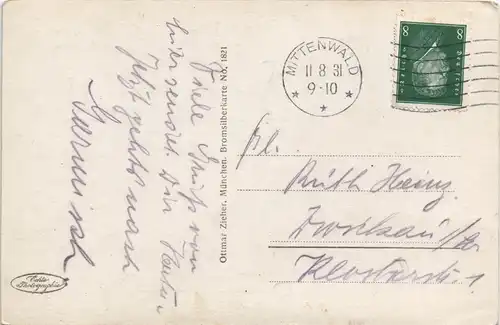 Viele Grüße von
hier sendet Dir Katen
Jetzt gehts nach
Garmisch.
Echte
Photographie
Ottmar Zieher, München. Bromsilberkarte No. 1821
MITTENWALD
11 8 31
9-10
8 8
Deutsches Reich
Frl.
Ruth Heinz
Zwickau/Sa.
Klosterstr. 1